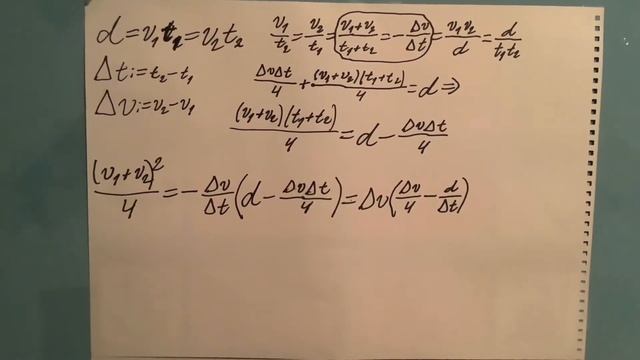 d = v₁t₁ = v₂t₂ v₁/t₂ = v₂/t₁ = (v₁+v₂)/(t₁+t₂) = -Δv/Δt = v₁v₂/d = d/(t₁t₂)
Δt := t₂ - t₁ ΔvΔt/4 + (v₁+v₂)(t₁+t₂)/4 = d ⇒
Δv := v₂ - v₁ (v₁+v₂)(t₁+t₂)/4 = d - ΔvΔt/4
(v₁+v₂)²/4 = -Δv/Δt (d - ΔvΔt/4) = Δv(Δv/4 - d/Δt)